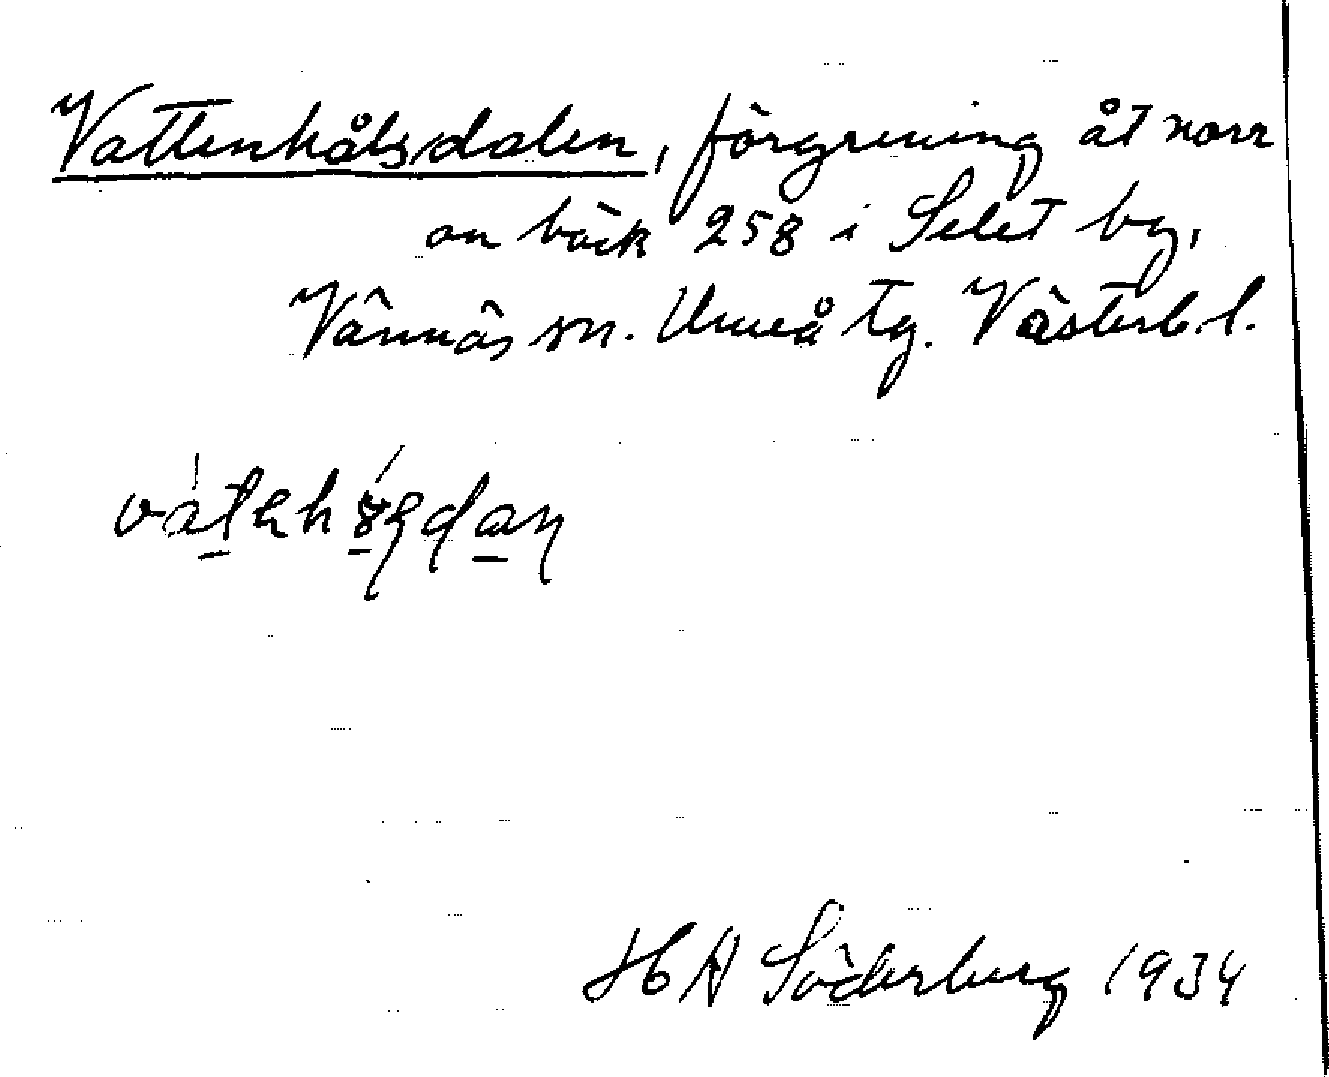 Vattenhålsdalen, förgrening åt norr
av bäck 258 i Selet by,
Vännäs sn. Umeå tg. Västerb. l.
H A Söderberg 1934